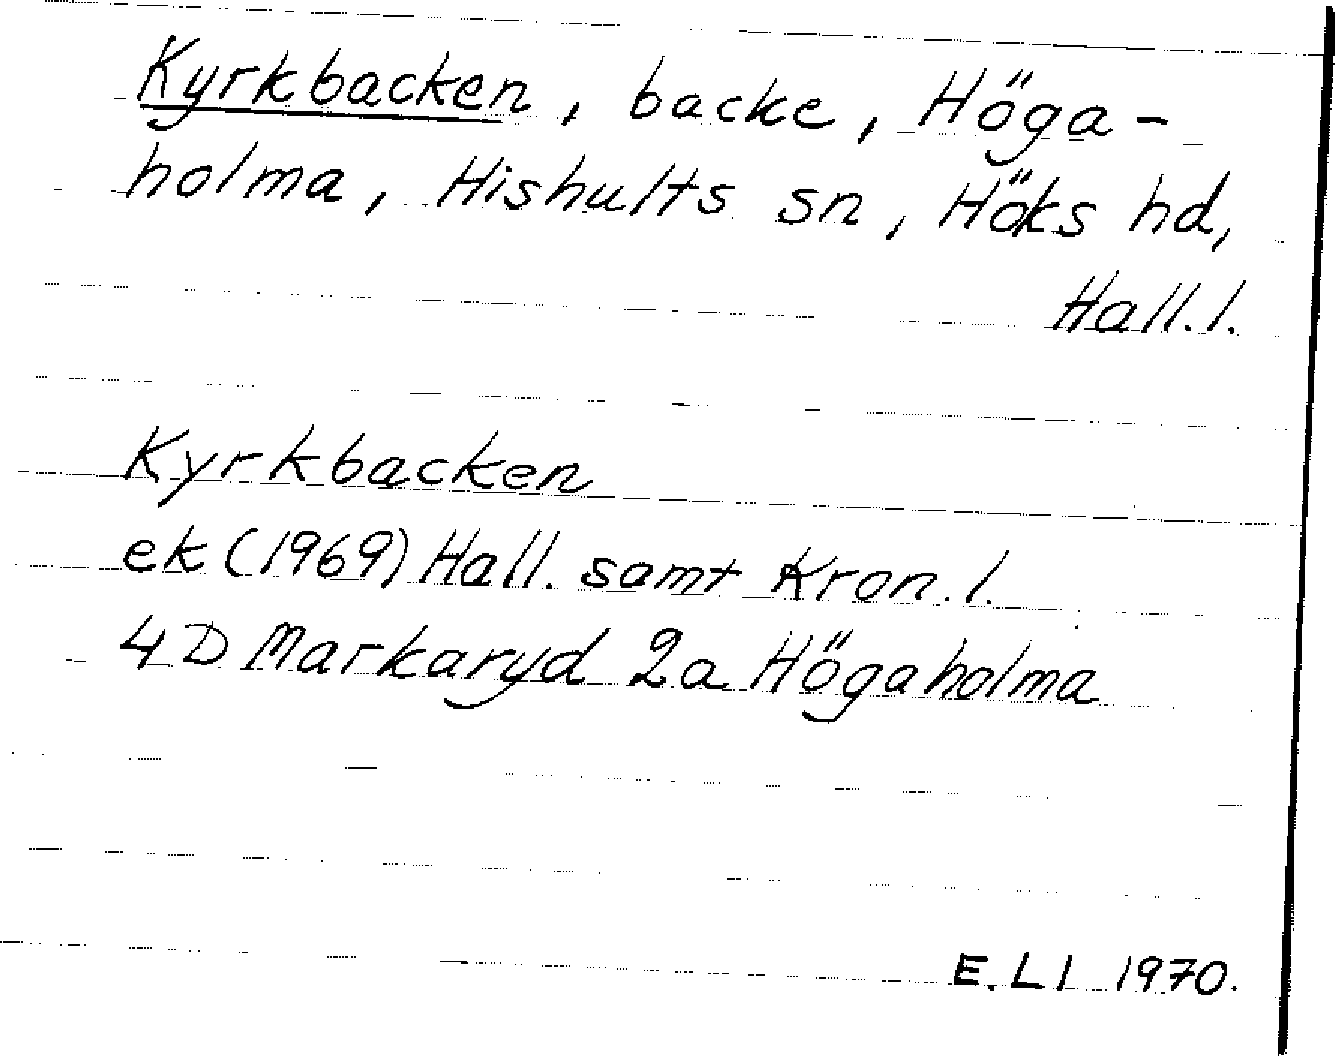 Kyrkbacken, backe, Höga-
holma, Hishults sn, Höks hd,
Hall.l.
Kyrkbacken
ek (1969) Hall. samt Kron.l.
4 D Markaryd 2a Högaholma
E.LI 1970.